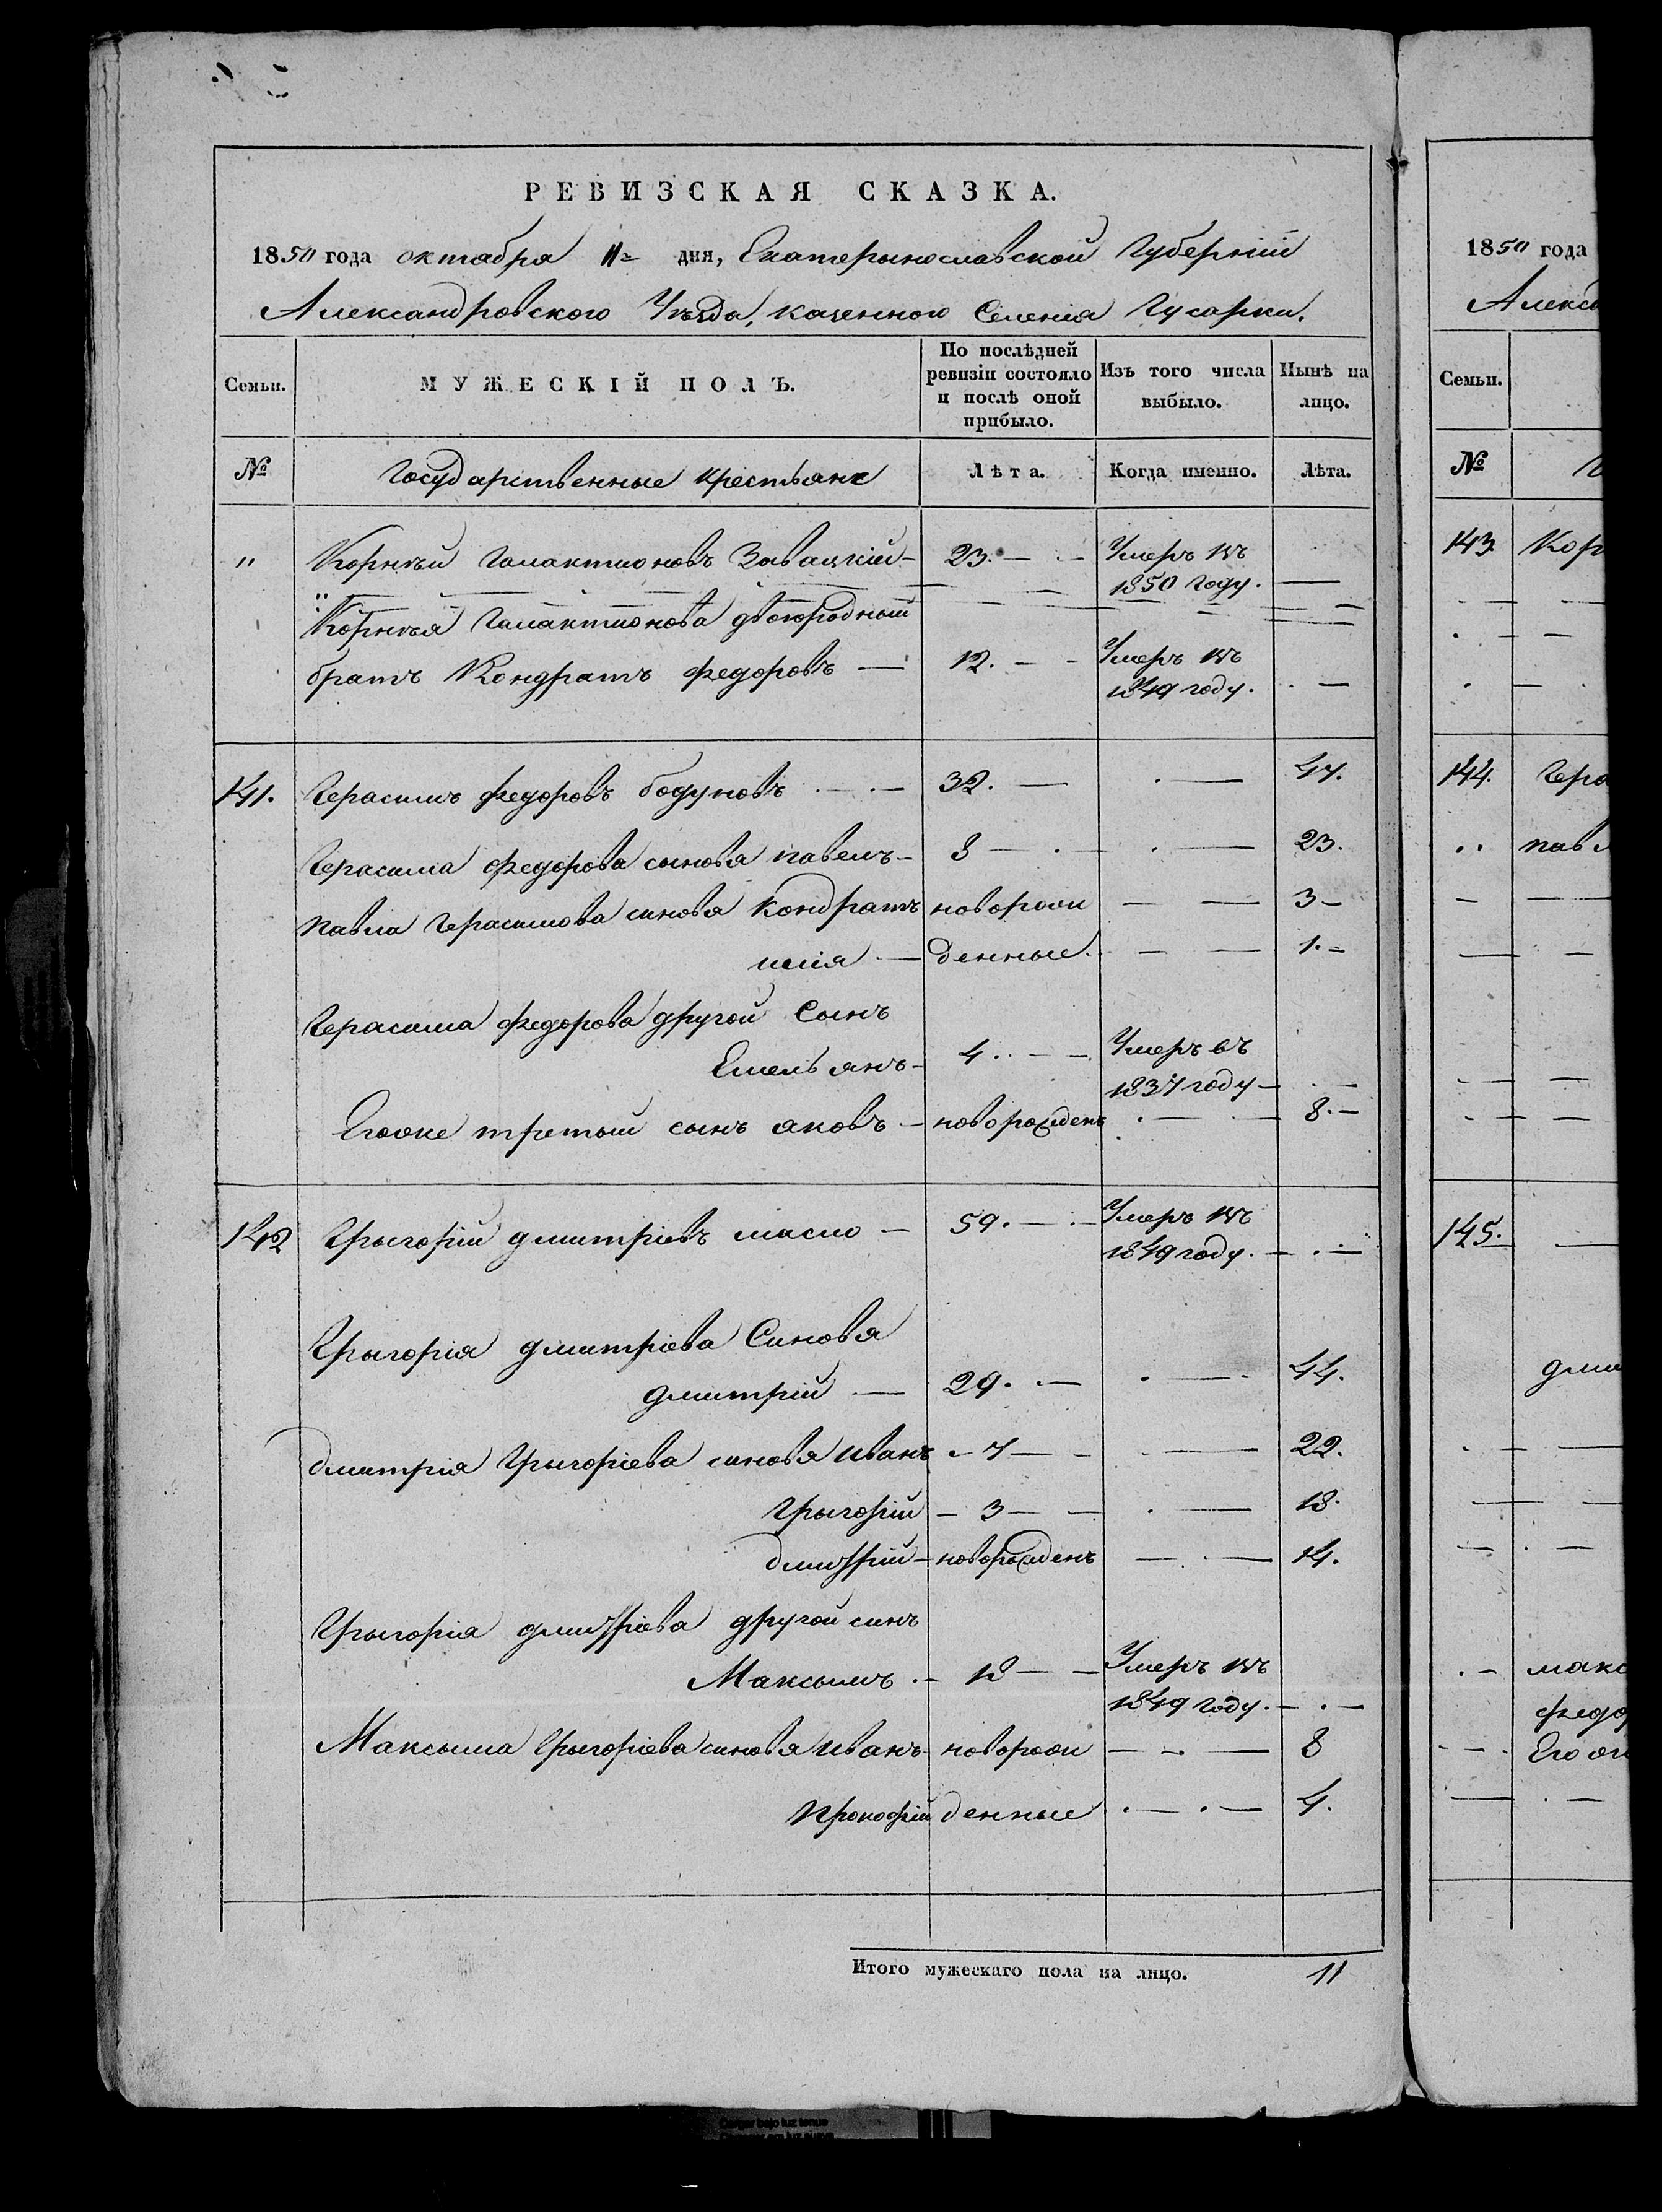 РЕВИЗСКАЯ СКАЗКА.
1850 года октабря 11= дня, Екатерынославской Губерніи
Александровского Уезда, казенного Селенія Гусарки.
Семьи.
МУЖЕСКІЙ ПОЛЪ.
По послѣдней
ревизіи состояло
и послѣ оной
прибыло.
Изъ того числа
выбыло.
Нынѣ на
лицо.
№
Государственные крестьяне
Лѣта.
Когда именно.
Лѣта.
" Корнѣй Галактионовъ Завацкій 23. Умеръ въ
1850 году.
Корнѣя Галактионова двоюродный
братъ Кондратъ федоровъ 12. Умеръ въ
1849 году.
141. Герасимъ федоровъ бодуновъ 32. 47.
Герасима федорова сыновя павелъ 8 23.
павла Герасимова синовя Кондратъ новорож 3
илія денные 1.
Герасима федорова другой Сынъ
Емельянъ 4. Умеръ въ
1837 году
Егоже третый сынъ яковъ новорожденъ 8.
142 Грыгорій дмитріевъ масло 59. Умеръ въ
1849 году.
Грыгорія дмитріева Синовя
дмитрій 29. 44.
дмитрія Грыгоріева синовя иванъ 7 22.
Грыгорій 3 18.
дмитрій новорожденъ 14.
Грыгорія дмитріева другой синъ
Максымъ 18 Умеръ въ
1849 году.
Максыма Грыгоріева синовя иванъ новорож 8
прокофій денные 4.
Итого мужескаго пола на лицо. 11
1850 года
Алекса
Семьи.
№
143 Кор
144. Гера
павл
145.
дми
макс
федо
Его